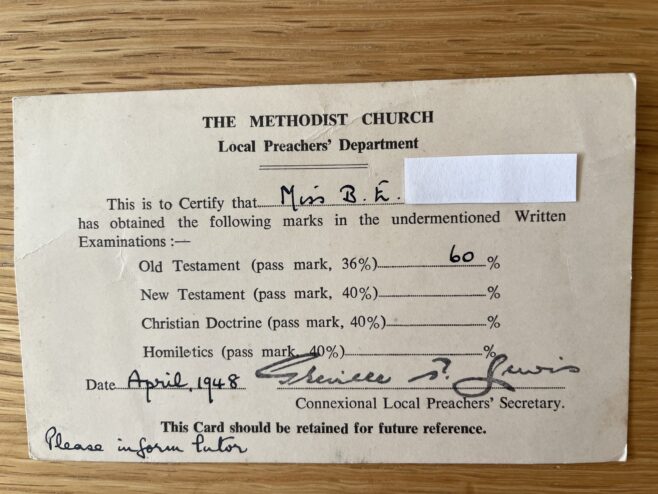 THE METHODIST CHURCH
Local Preachers' Department
This is to Certify that Miss B. E.
has obtained the following marks in the undermentioned Written
Examinations :—
Old Testament (pass mark, 36%) 60 %
New Testament (pass mark, 40%) %
Christian Doctrine (pass mark, 40%) %
Homiletics (pass mark, 40%) %
Date April, 1948 Greville P. Lewis
Connexional Local Preachers' Secretary.
This Card should be retained for future reference.
Please inform tutor